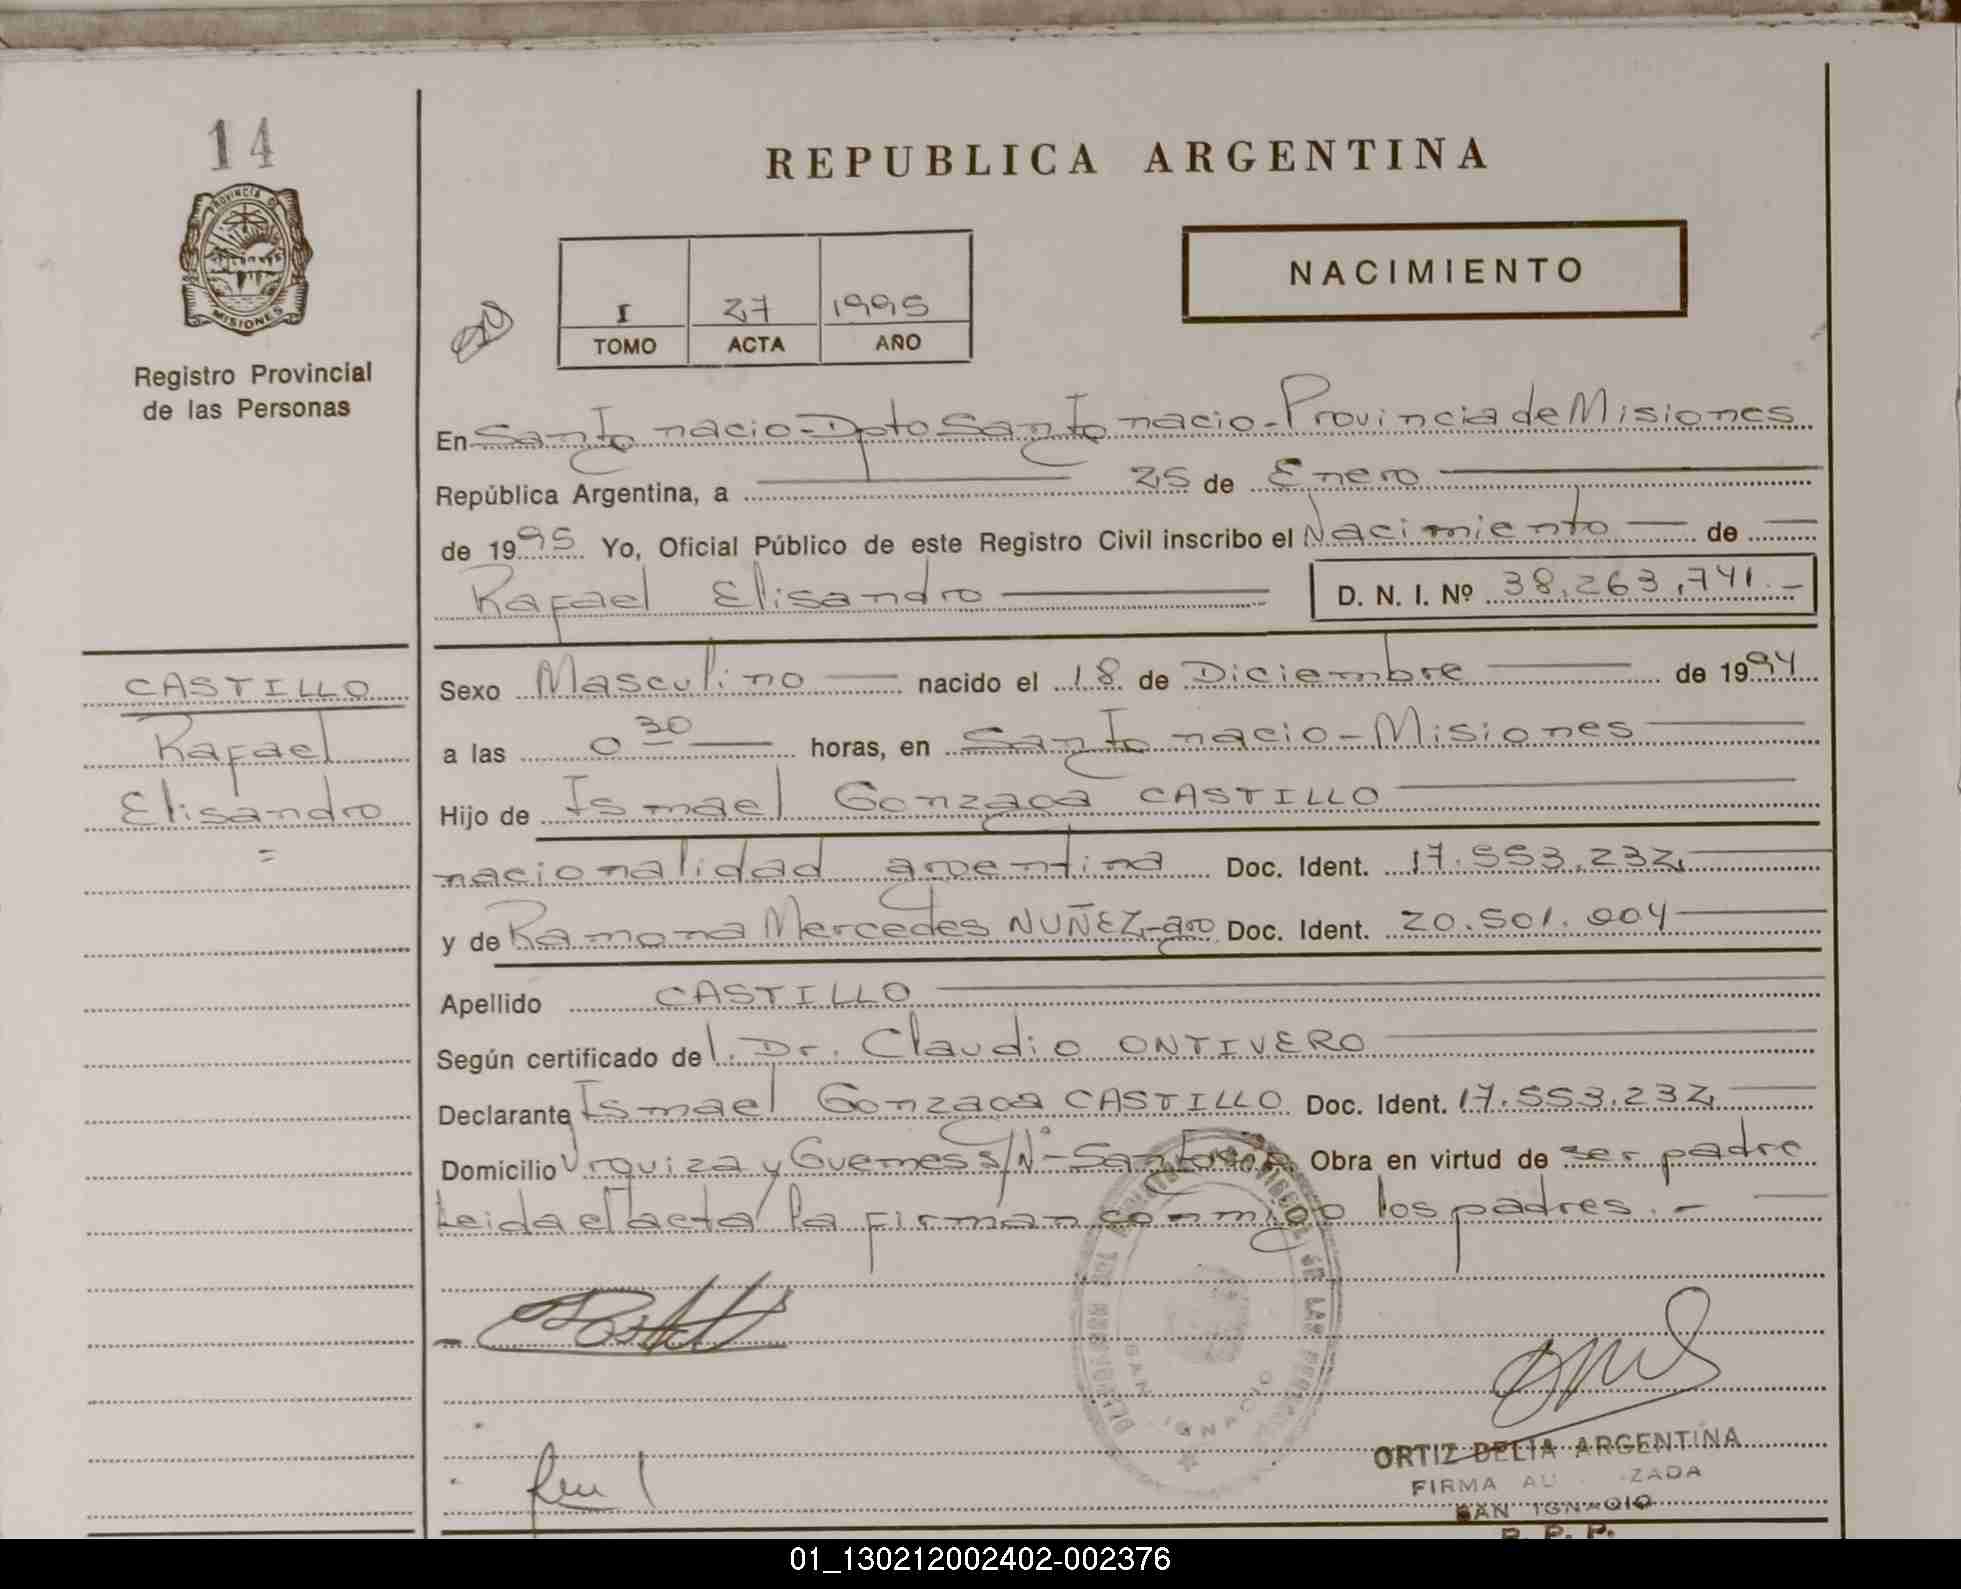 14
PROVINCIA DE
MISIONES
Registro Provincial
de las Personas
REPUBLICA ARGENTINA
NACIMIENTO
I 27 1995
TOMO ACTA AÑO
En San Ignacio - Dpto San Ignacio - Provincia de Misiones
República Argentina, a 25 de Enero
de 1995 Yo, Oficial Público de este Registro Civil inscribo el Nacimiento de
Rafael Elisandro D. N. I. Nº 38.263.741.-
CASTILLO
Rafael
Elisandro
=
Sexo Masculino nacido el 18 de Diciembre de 1994
a las 0 30 horas, en San Ignacio - Misiones
Hijo de Ismael Gonzaga CASTILLO
nacionalidad argentina Doc. Ident. 17.553.232
y de Ramona Mercedes NUÑEZ - arg Doc. Ident. 20.501.004
Apellido CASTILLO
Según certificado del Dr. Claudio ONTIVERO
Declarante Ismael Gonzaga CASTILLO Doc. Ident. 17.553.232
Domicilio Urquiza y Guemes S/Nº - San Igncio Obra en virtud de ser padre
Leida el acta la firman conmigo los padres.-
SAN IGNACIO
ORTIZ DELIA ARGENTINA
FIRMA
SAN IGNACIO
R. P. P.
01_130212002402-002376